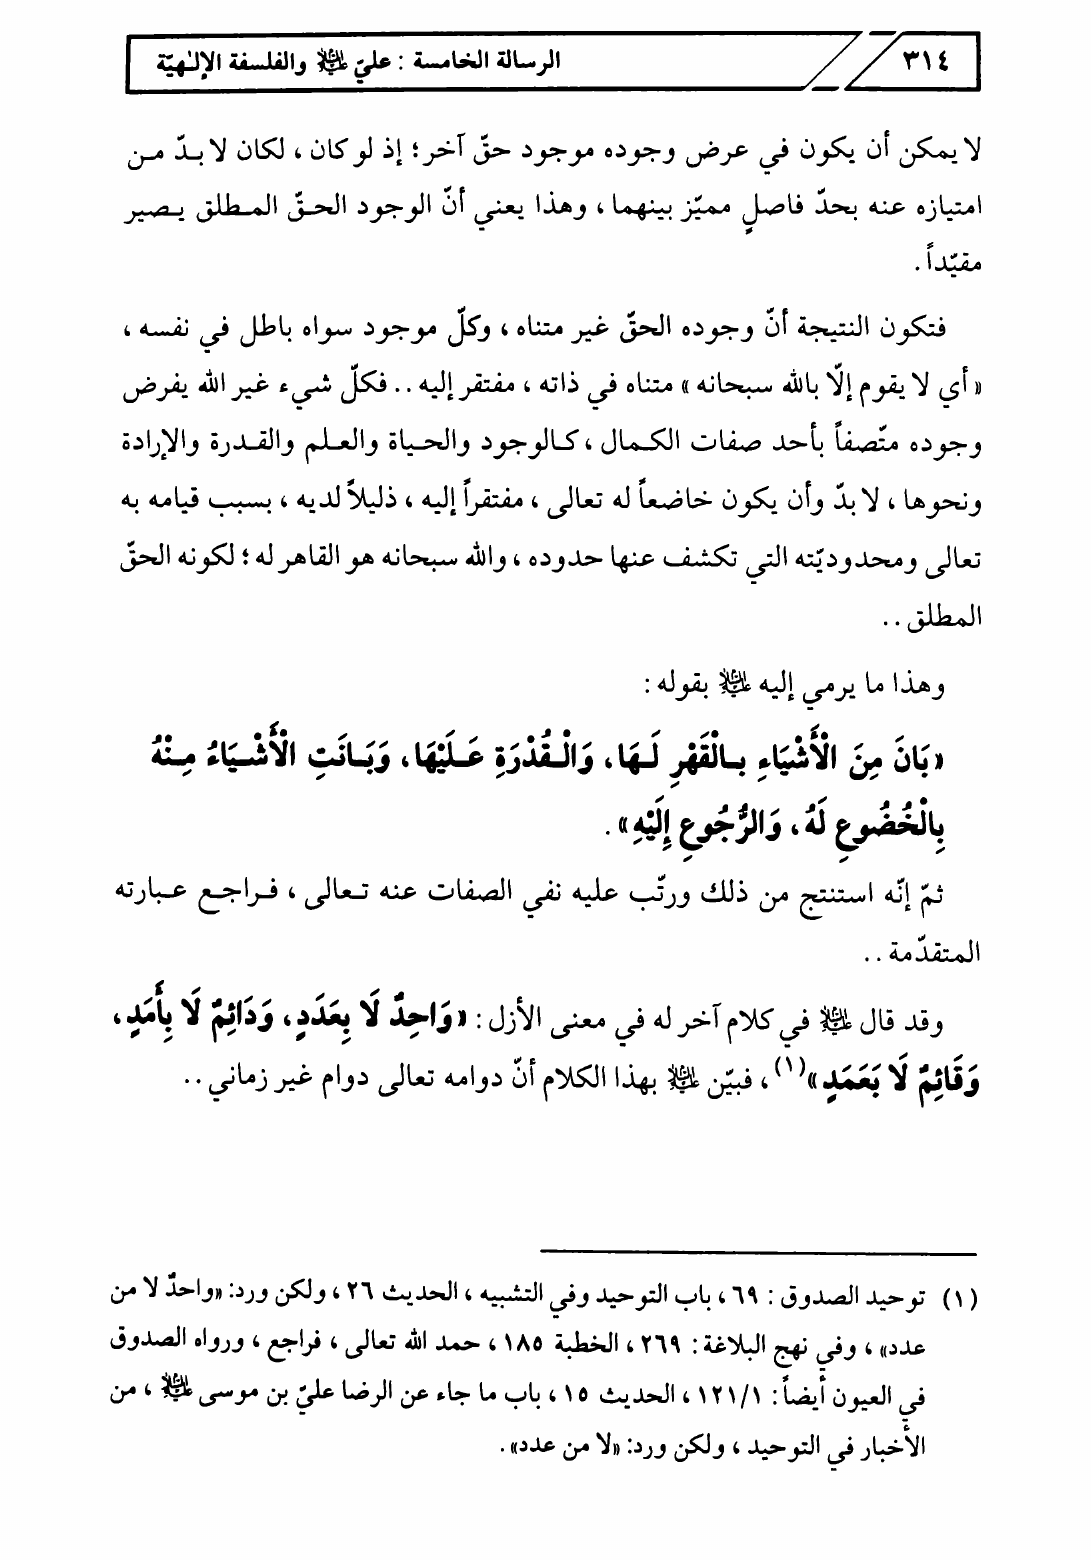 ٣١٤
الرسالة الخامسة : عليّ عليه السلام والفلسفة الإلٰهيّة
لا يمكن أن يكون في عرض وجوده موجود حقّ آخر؛ إذ لو كان ، لكان لا بدّ من
امتيازه عنه بحدّ فاصلٍ مميّز بينهما ، وهذا يعني أنّ الوجود الحقّ المطلق يصير
مقيّداً .
فتكون النتيجة أنّ وجوده الحقّ غير متناه ، وكلّ موجود سواه باطل في نفسه ،
« أي لا يقوم إلّا بالله سبحانه » متناه في ذاته ، مفتقر إليه .. فكلّ شيء غير الله يفرض
وجوده متّصفاً بأحد صفات الكمال ، كالوجود والحياة والعلم والقدرة والإرادة
ونحوها ، لا بدّ وأن يكون خاضعاً له تعالى ، مفتقراً إليه ، ذليلاً لديه ، بسبب قيامه به
تعالى ومحدوديّته التي تكشف عنها حدوده ، والله سبحانه هو القاهر له ؛ لكونه الحقّ
المطلق ..
وهذا ما يرمي إليه عليه السلام بقوله :
« بَانَ مِنَ الْأَشْيَاءِ بِالْقَهْرِ لَهَا ، وَالْقُدْرَةِ عَلَيْهَا ، وَبَانَتِ الْأَشْيَاءُ مِنْهُ
بِالْخُضُوعِ لَهُ ، وَالرُّجُوعِ إِلَيْهِ » .
ثمّ إنّه استنتج من ذلك ورتّب عليه نفي الصفات عنه تعالى ، فراجع عبارته
المتقدّمة ..
وقد قال عليه السلام في كلام آخر له في معنى الأزل : « وَاحِدٌ لَا بِعَدَدٍ ، وَدَائِمٌ لَا بِأَمَدٍ ،
وَقَائِمٌ لَا بَعَمَدٍ »(١) ، فبيّن عليه السلام بهذا الكلام أنّ دوامه تعالى دوام غير زماني ..
(١) توحيد الصدوق : ٦٩ ، باب التوحيد وفي التشبيه ، الحديث ٢٦ ، ولكن ورد: «واحدٌ لا من
عدد» ، وفي نهج البلاغة : ٢٦٩ ، الخطبة ١٨٥ ، حمد الله تعالى ، فراجع ، ورواه الصدوق
في العيون أيضاً : ١٢١/١ ، الحديث ١٥ ، باب ما جاء عن الرضا عليّ بن موسى عليه السلام ، من
الأخبار في التوحيد ، ولكن ورد: «لا من عدد» .